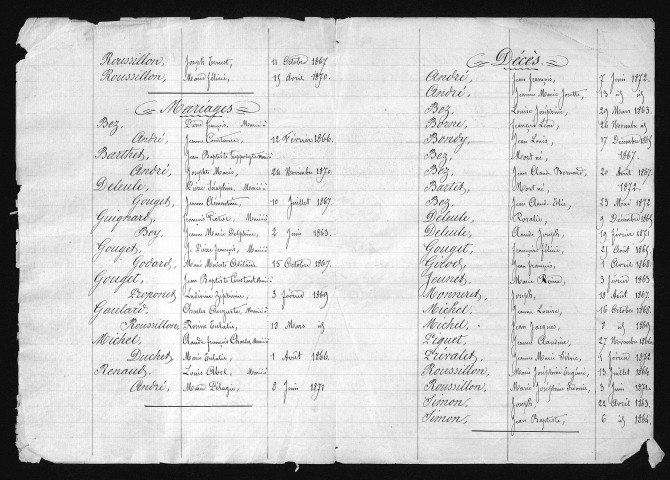 Roussillon, Joseph Ernest, 11 Octobre 1867
Roussillon, Marie 15 Avril 1870.
Mariages
Bez. Pierre François, Marié à
André, Jeanne Constance, 12 Février 1866.
Barthet, Jean Baptiste Hippolyte Marié à
André, Josephte Marie, 22 Novembre 1870.
Deleule, Pierre Séraphin Marié à
Gouget, Jeanne Clémentine, 10 Juillet 1867.
Guignard, François Victor, Marié à
Bey, Jeanne Marie Delphine, 2 Juin 1863.
Gouget, J. Pierre François, Marié à
Godard, Marie 15 Octobre 1867.
Gouget, Jean Baptiste Constant Marié à
Proponet Ladivine Zéphirine, 3 Février 1869
Gaulard. Charles Auguste, Marié à
Roussillon, Rosine Eulalie, 12 Mars id
Michel, Claude François Charles Marié à
Duchet, Marie Eulalie, 1 Août 1866.
Renaud. Louis Abel, Marié à
André, Marie Pélagie, 2 Juin 1871
Décès.
André, Jean François, 7 Juin 1872.
André, Jeanne Marie Josette, 13 id id
Bez, Louise Joséphine, 29 Mars 1863.
Borne, François Léon, 26 Novembre id
Bondy, Jean Louis, 17 Décembre 1865
Bez, Mort né, 1867.
Bez, Jean Claude Bernard, 20 Août 1867.
Bartet, Mort né, 1872.
Bez, Jean Claude Félix, 23 Mai 1872
Deleule, Rosalie, 9 Décembre
Deleule, Claude Joseph, 19 Février 1871
Gouget, François Félicien, 21 Août 1865.
Gidod, Jean François, 1 Avril 1868.
Jeunet, Marie 3 Février 1863
Monneret, Joseph, 18 Août 1867.
Michel, Jeanne Louise, 16 Octobre 1868.
Michel, Jean Jacques, 2 id 1869.
Piquet, Jeanne Claudine, 27 Novembre 1866.
Prévalet, Jeanne Marie 4 Février 1872
Roussillon, Marie Joséphine Eugénie, 13 Juillet 1869
Roussillon, Marie Joséphine 3 Juin 1871.
Simon, Joseph, 22 Avril 1863.
Simon, Jean Baptiste, 6 id 1864.